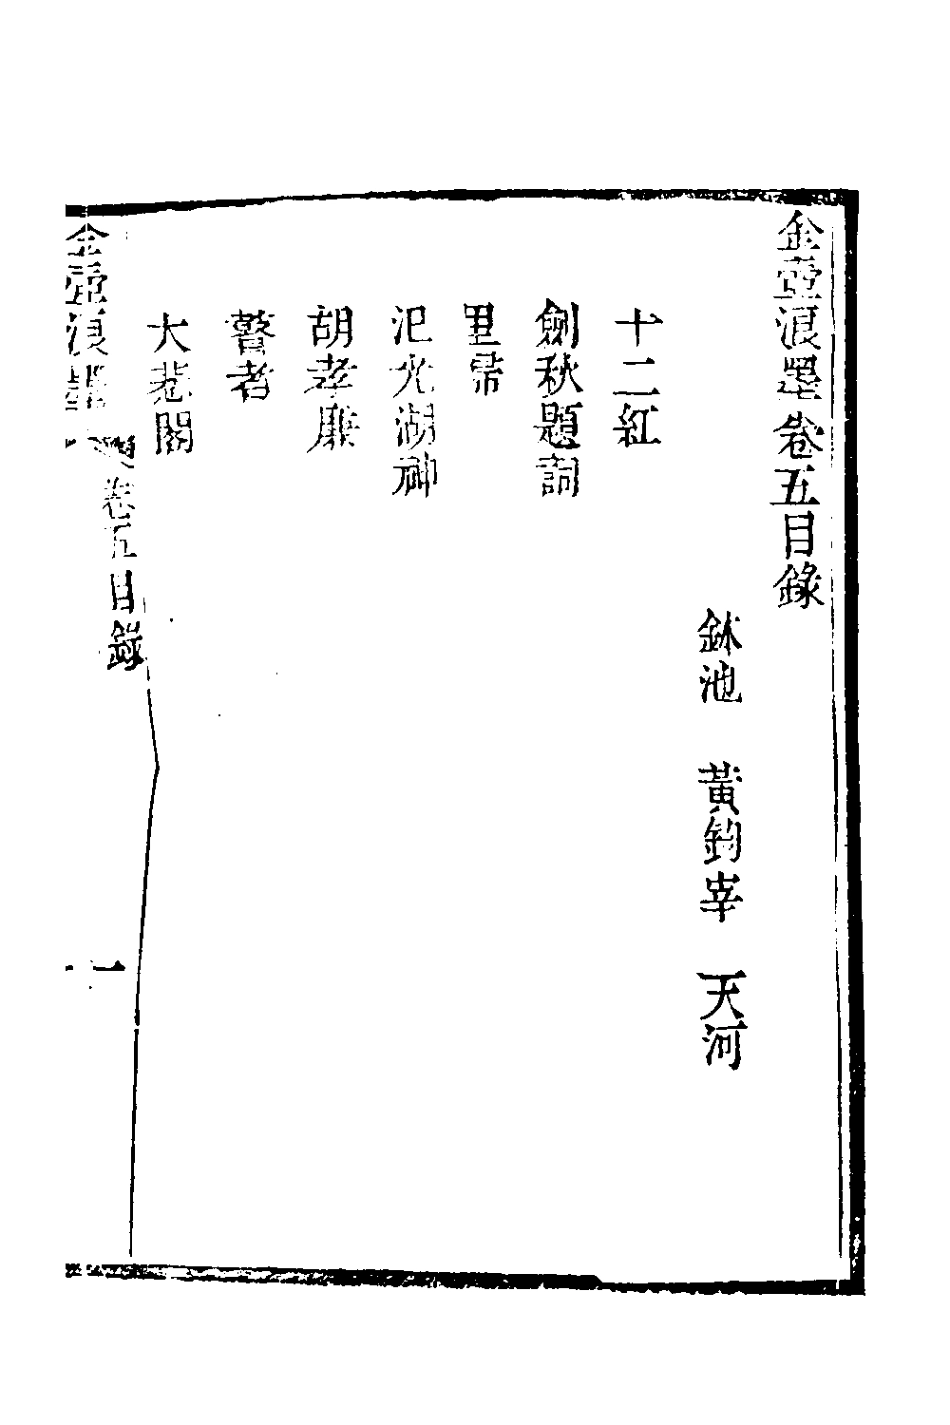 金壺浪墨卷五目錄
鉢池　黃鈞宰　天河
十二紅
劍秋題詞
里芾
汜光湖神
胡孝廉
瞽者
大悲閣
金壺浪墨 卷五目錄 一